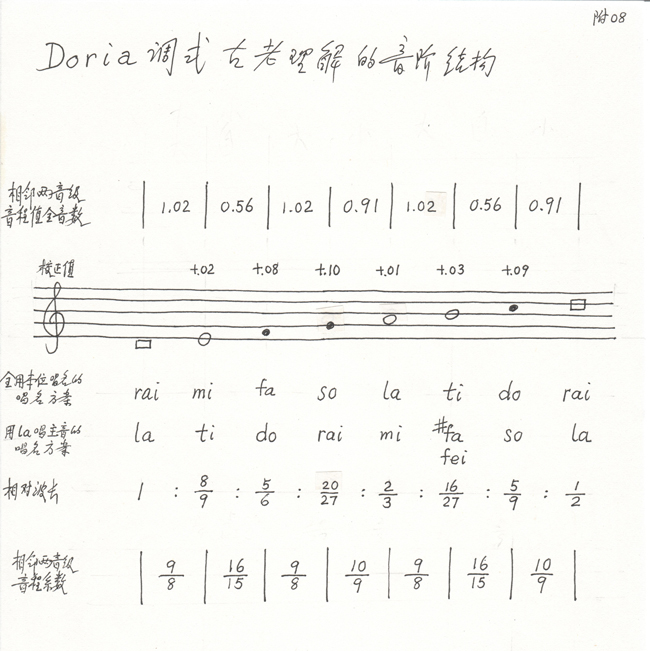 附08
Doria调式古老理解的音阶结构
相邻两音级
音程值全音数
| 1.02 | 0.56 | 1.02 | 0.91 | 1.02 | 0.56 | 0.91 |
校正值 +.02 +.08 +.10 +.01 +.03 +.09
全用本位唱名的
唱名方案
rai mi fa so la ti do rai
用la唱主音的
唱名方案
la ti do rai mi #fa so la
fei
相对波长 1 : 8/9 : 5/6 : 20/27 : 2/3 : 16/27 : 5/9 : 1/2
相邻两音级
音程系数
| 9/8 | 16/15 | 9/8 | 10/9 | 9/8 | 16/15 | 10/9 |